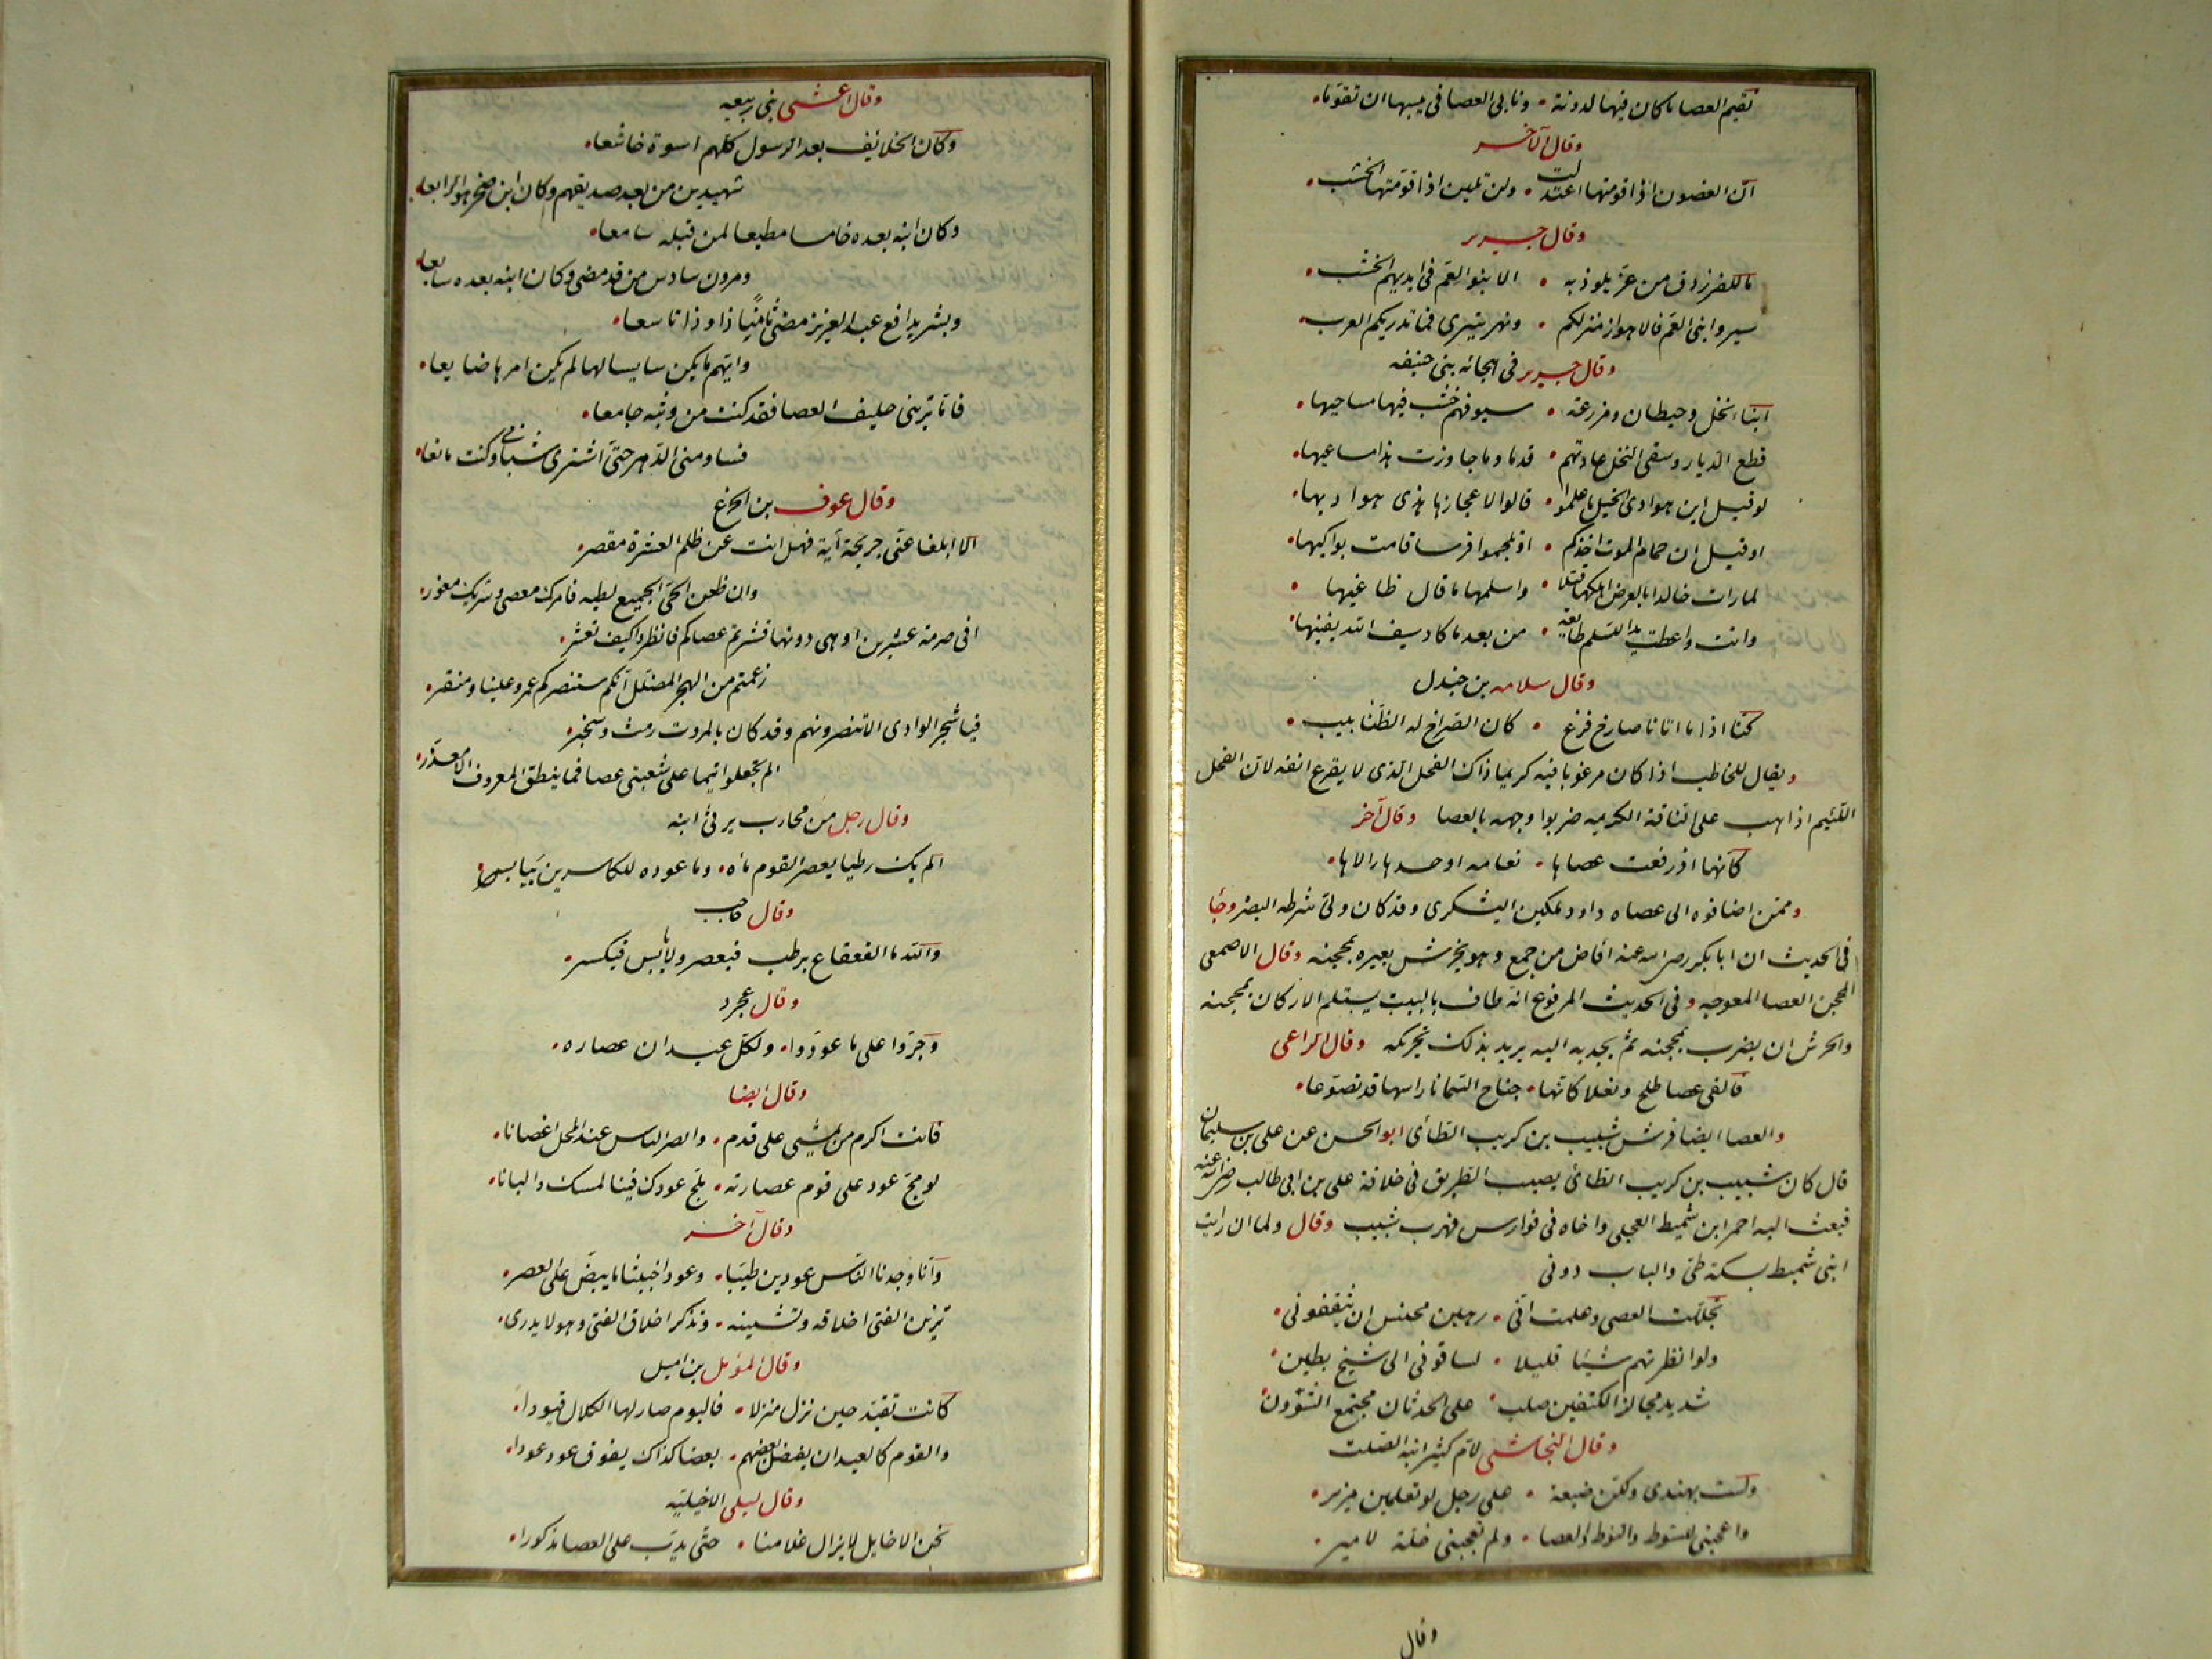 تقيم العصا ما كان فيها لدونة • وتابى العصا فى يبسها ان تقوّما •
وقال الآخر
انّ الغصون اذا قومتها اعتدلت • ولن تلين اذا قوّمتها الخشب •
وقال جرير
ما للفرزدق من عزّ يلوذ به • الا بنو العمّ فى ايديهم الخشب •
سيروا بنى العمّ فالاهواز منزلكم • ونهر تيرى فما تدريكم العرب •
وقال جرير فى هجائه بنى حنيفه
ابنا نخل وحيطان ومزرعة • سيوفهم خشب فيها مساحيها •
قطع الديار وسقى النخل عادتهم • قدما وما جاوزت هذا مساعيها •
لو قيل اين هوادى الخيل ما علموا • قالوا لاعجازها هذى هواديها •
او قيل ان حمام الموت اخذكم • او تلجموا فرسا قامت بواكيها •
لما رات خالدا بالعرض اهلكها قتلا • واسلمها ما قال طاغيها •
دانت واعطت يدا للسلم طائعة • من بعد ما كاد سيف الله يفنيها •
وقال سلامه بن جندل
كنّا اذا ما اتانا صارخ فزع • كان الصّراخ له الظنابيب •
ويقال للخاطب اذا كان مرغوبا فيه كريما ذاك الفحل الذى لا يقرع انفه لانّ الفحل
اللئيم اذا هب على الناقة الكريمه ضربوا وجهه بالعصا وقال آخر
كانّها اذ رفعت عصاها • نعامه اوحدها رالاها •
وممّن اضافوه الى عصاه داود ملكين اليشكرى وقد كان ولى شرطه البصر وجأ
فى الحديث ان ابا بكر رضى الله عنه افاض من جمع وهو يخرش بعيره بمحجنه وقال الاصمعى
المحجن العصا المعوجه وفى الحديث المرفوع انّه طاف بالبيت يستلم الاركان بمحجنه
والخرش ان يضرب بمحجنه ثم يجذبه اليه يريد بذلك تحريكه وقال الراعى
فالقى عصا طلح ونعلا كانّها • جناح السمانا راسها قد تصوّعا •
والعصا ايضا فرس شبيب بن كريب الطائى ابو الحسن عن على بن سليمان
قال كان شبيب بن كريب الطائى يصيب الطريق فى خلافة على بن ابى طالب رضى الله عنه
فبعث اليه احمر ابن شميط العجلى واخاه فى فوارس فهرب شبيب وقال ولما ان رايت
ابنى شميط بسكة طىّ والباب دونى
تجلّلت العصى وعلمت انّى • رهين محيس ان يثقفونى •
ولو انظرتهم شيئا قليلا • لساقونى الى شيخ بطين •
شديد مجالز الكتفين صلب • على الحدثان مجتمع الشؤون •
وقال النجاشى لام كثير ابنه الصّلت
ولست بهندى ولكن ضيعة • على رجل لو تعلمين مزير •
واعجبنى للسّوط والنوط والعصا • ولم تعجبنى خلّة لامير •
وقال
وقال اعشى بنى ربيعه
وكان الخلائف بعد الرسول كلهم اسوة خاشعا •
شهيدين من بعد صديقهم وكان ابن صخر هو الرابعا •
وكان ابنه بعده خامسا مطيعا لمن قبله سامعا •
ومرون سادس من قد مضى وكان ابنه بعده سابعا •
وبشر يدافع عبد العزيز مضى ثامنيا ذا وذا تاسعا •
وايّهم ما يكن سايسا لها لم يكن امرها ضايعا •
فاتا ترينى حليف العصا فقد كنت من وثبه جامعا •
فساومنى الدّهر حتى اشترى شبابى وكنت مانعا •
وقال عوف بن الخرع
الا ابلغا عنى جريحة آية فهل انت عن ظلم العشرة مقصر •
وان ظعن الحىّ الجميع لطيه فامرك معصى وشربك مغور •
افى صرمة عشرين او هى دونها قشرتم عصاكم فانظروا كيف تقشر •
زعمتم من الهجر المضلّل انّكم ستنصركم عمرو علينا ومنقر •
فيا شجر الوادى الا تنصرونهم وقد كان بالمروت رمث وسخبر •
الم تجعلوا تيما على شعبتى عصا فما ينطق المعروف الا معذّر •
وقال رجل من محارب يرثى ابنه
الم يك رطبا يعصر القوم مأه • وما عوده للكاسرين بيابس •
وقال حاجب
والله ما القعقاع برطب فيعصر ولا يابس فيكسر •
وقال عجرد
وجرّوا على ما عوّدوا • ولكلّ عيدان عصاره •
وقال ايضا
فانت اكرم من يمشى على قدم • وانضر الناس عند المحل اغصانا •
لو مجّ عود على قوم عصارته • لمجّ عودك فينا لمسك والبانا •
وقال آخر
وانّا وجدنا النّاس عودين طيّبا • وعودا خبيثا ما يبضّ على العصر •
تزين الفتى اخلاقه وتشينه • وتذكر اخلاق الفتى وهو لا يدرى •
وقال المؤمل بن اميل
كانت تقيّد حين نزل منزلا • فاليوم صار لها الكلال قيودا •
والقوم كالعيدان يفضل بعضهم • بعضا كذاك يفوق عود عودا •
وقال ليلى الاخيليّه
نحن الاخايل لا يزال غلامنا • حتّى يدبّ على العصا مذكورا •